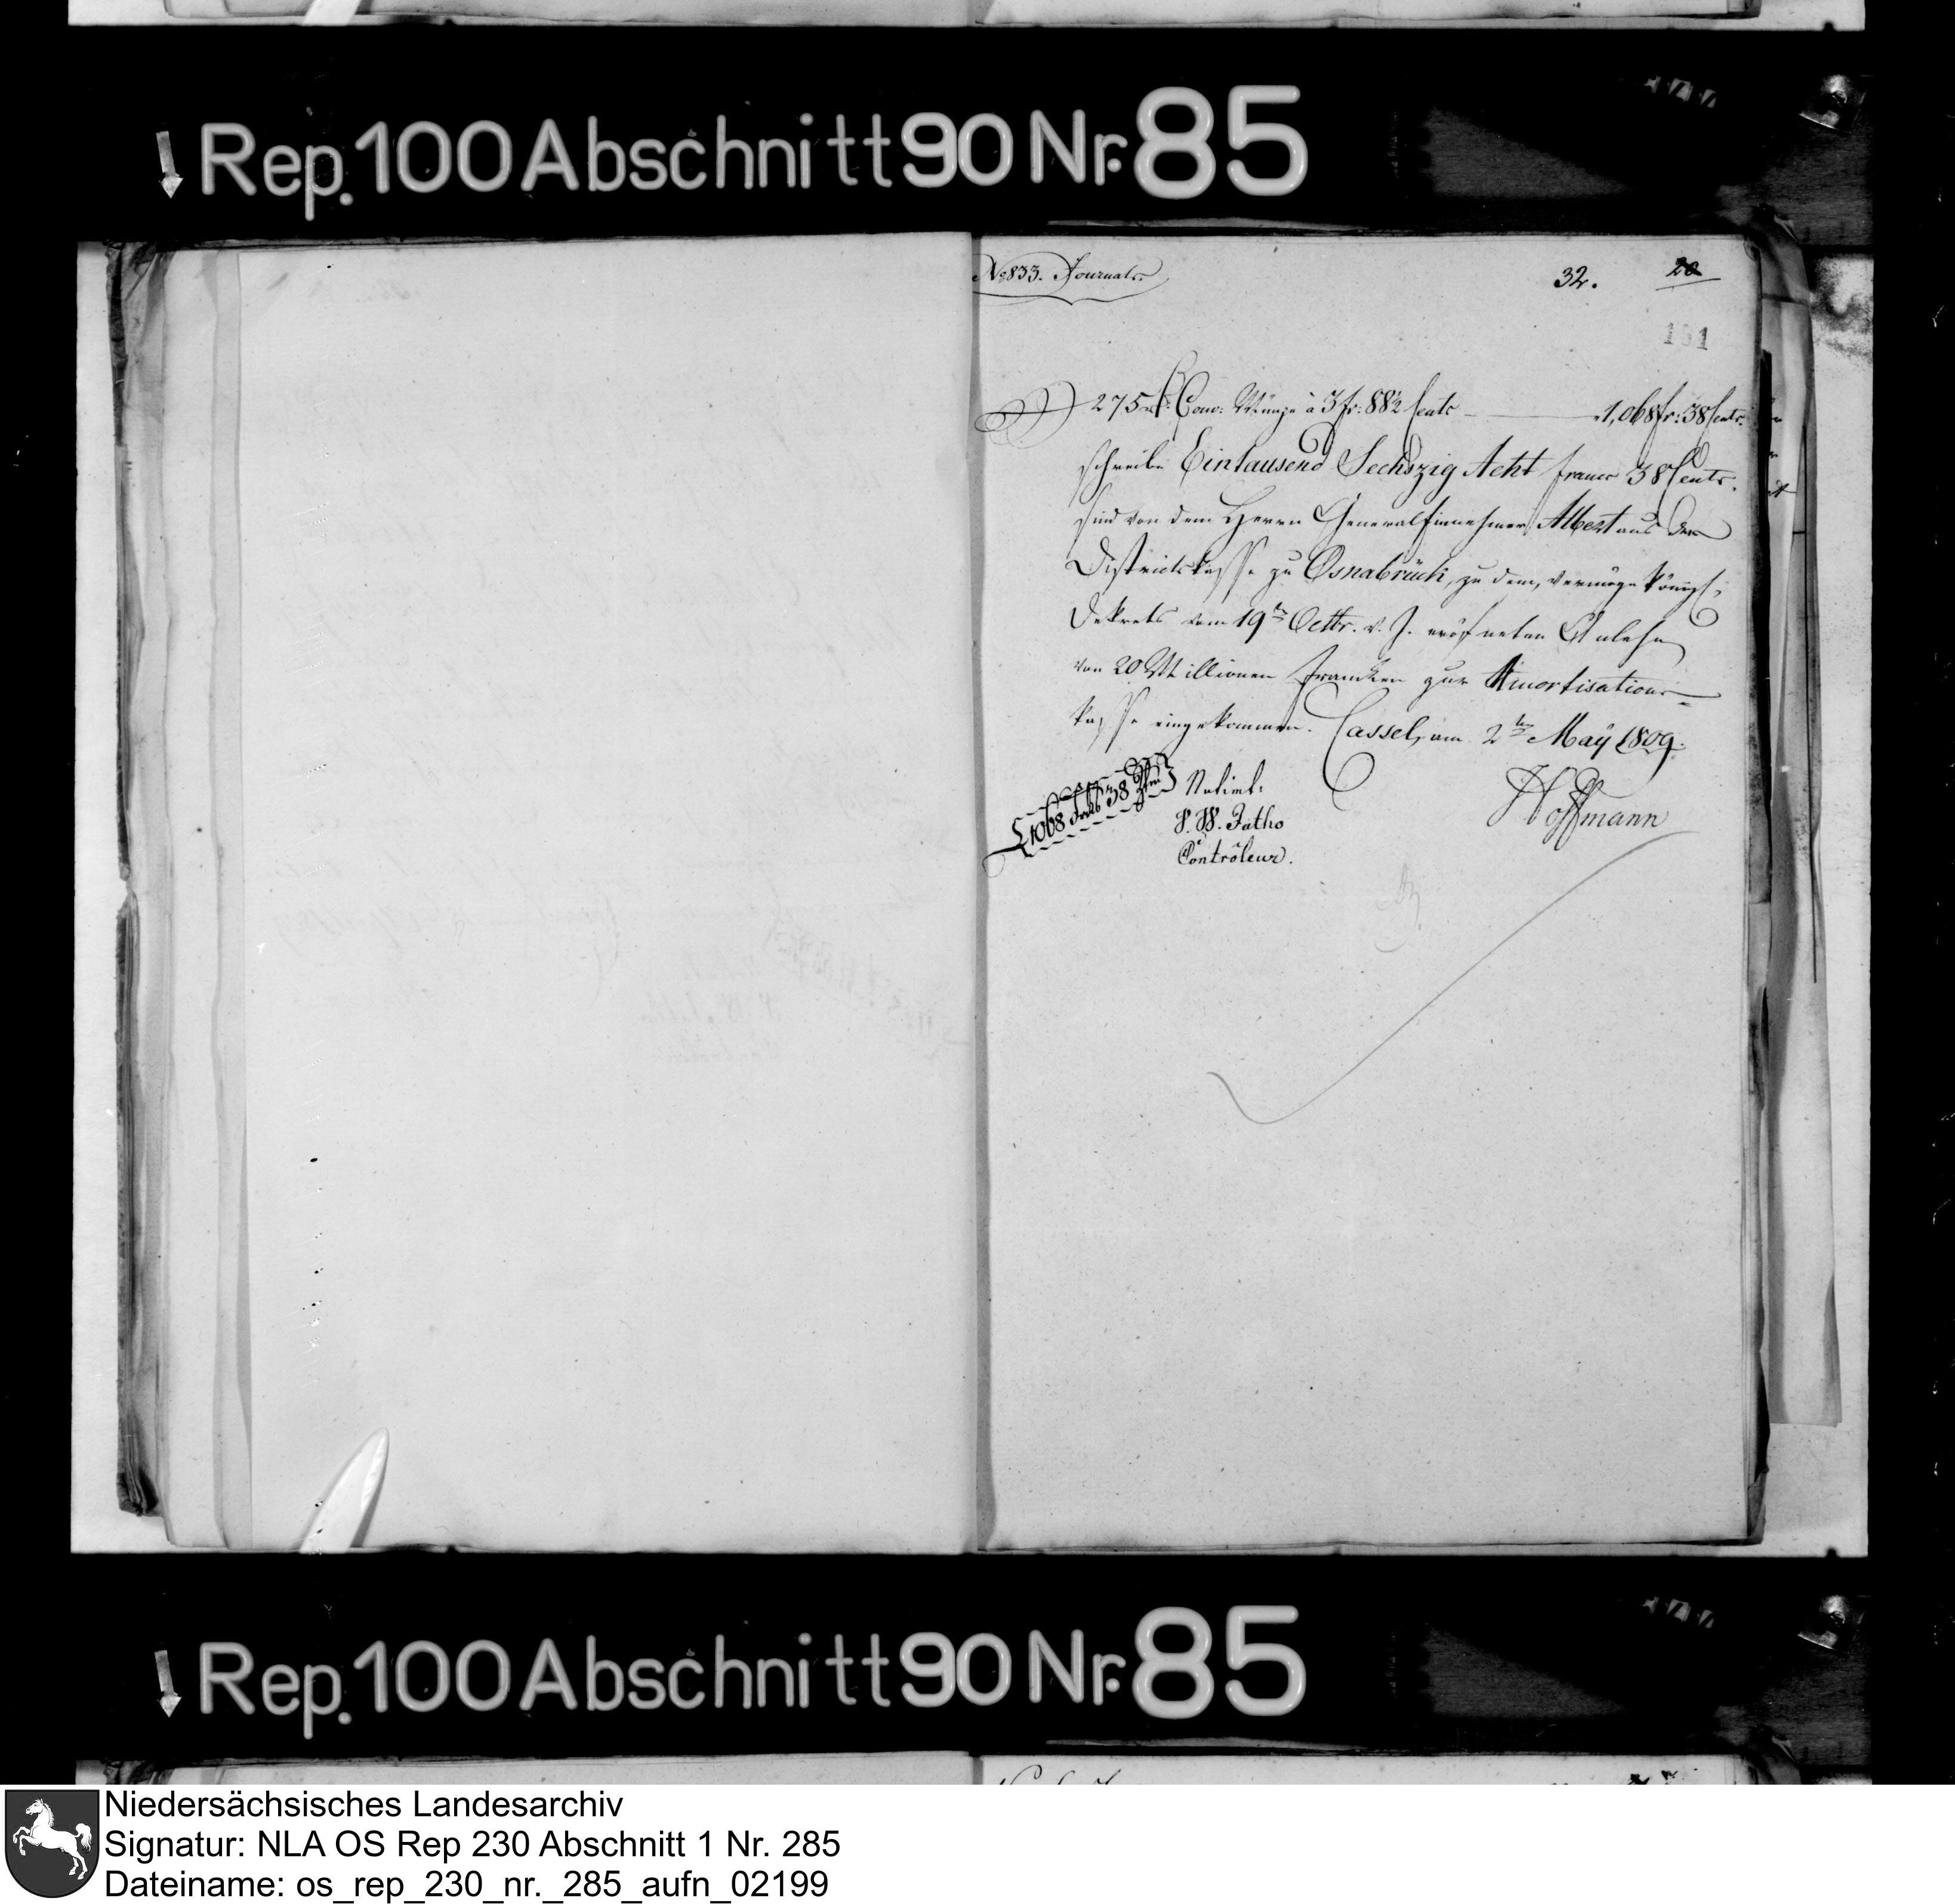 Rep. 100 Abschnitt 90 Nr. 85
No 833. Journals.
32. 20
1 1
275 rt. Conv: Münze à 3 fr: 88½ Cents 1,068 fr: 38 Cents.
schreibe Eintausend Sechszig Acht Francs 38 Cents.
sind von dem Herrn General Einnehmer Albert aus der
Districtskasse zu Osnabrück, zu dem, vermöge Königl:
Dekrets vom 19ten Octbr. v. J. eröfneten Anlehn
von 20 Millionen Francken zur Amortisations-
kasse eingekommen. Cassel, am 2ten May 1809.
1068 Frks 38 Ztm
Notirt:
Hoffmann
P. W. Fatho
Contrôleur.
Rep. 100 Abschnitt 90 Nr. 85
Niedersächsisches Landesarchiv
Signatur: NLA OS Rep 230 Abschnitt 1 Nr. 285
Dateiname: os_rep_230_nr._285_aufn_02199